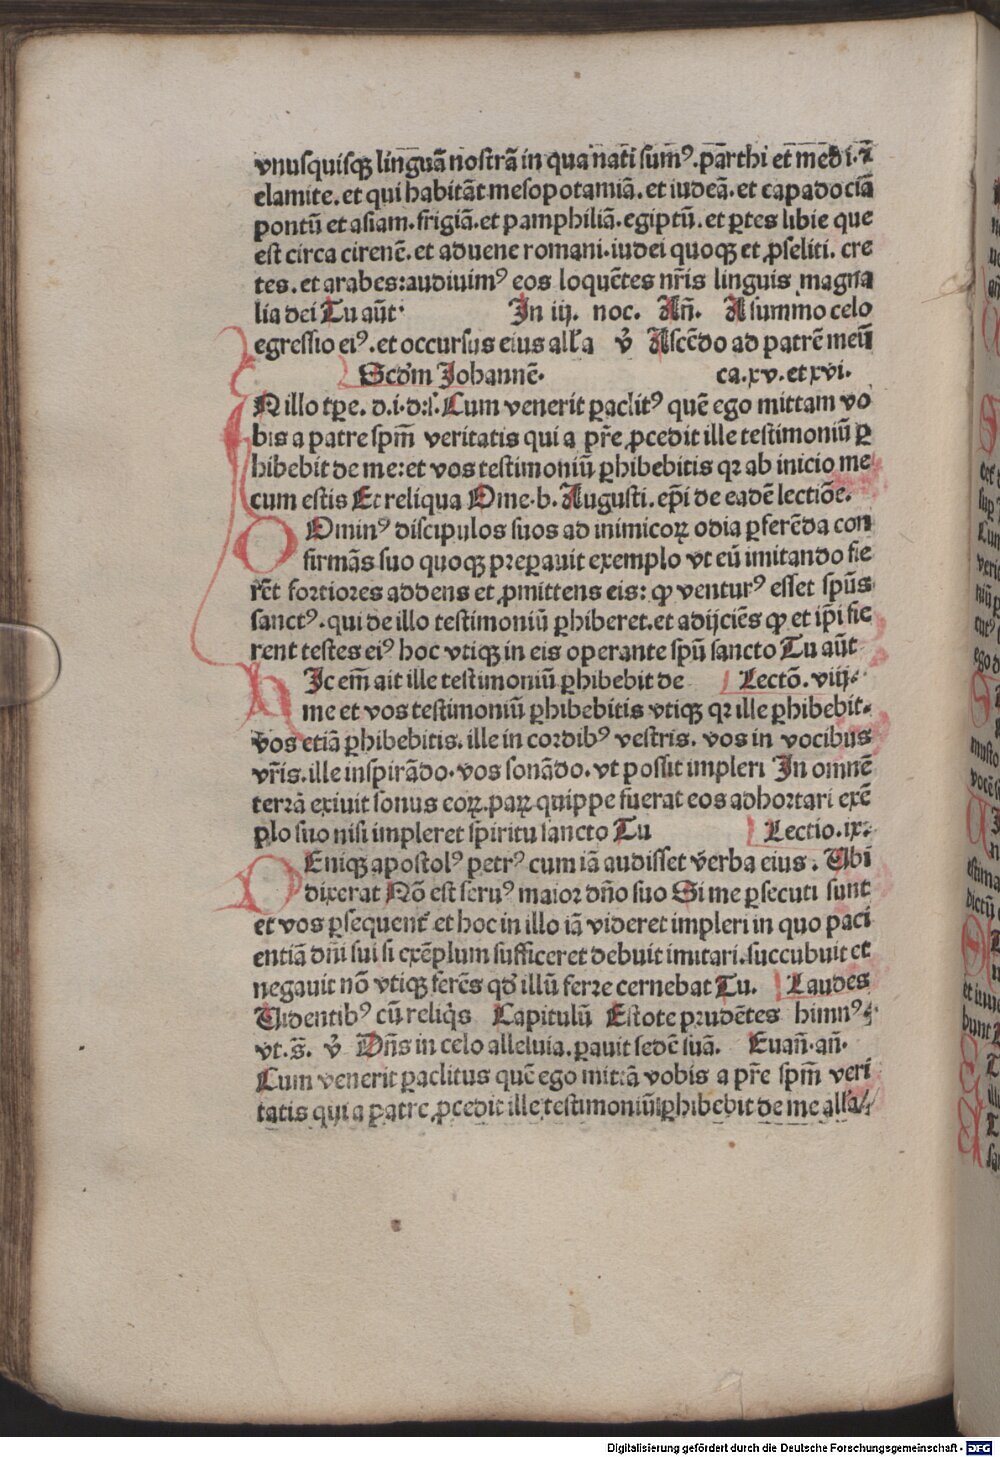 vnuſquiſqꝫ linguā noſtrā in qua nati ſumꝰ. parthi et medi. ⁊
elamite. et qui habitāt meſopotamiā. et iudeā. et capadociā
pontū et aſiam. frigiā. et pamphiliā. egiptū. et ꝑtes libie que
eſt circa cirenē. et aduene romani. iudei quoqꝫ et ꝓſeliti. cre
tes. et arabes: audiuimꝰ eos loquētes nr̄is linguis magna
lia dei Tu aūt· In iij. noc. Añ. A ſummo celo
egreſſio eiꝰ. et occurſus eius alľa ṽ Aſcēdo ad patrē meū
Scďm Johannē· ca. xv. et xvi.
N illo tꝑe. d. i. d: ſ. Cum venerit ꝑaclitꝰ quē ego mittam vo
bis a patre ſpm̄ veritatis qui a pr̄e ꝓcedit ille teſtimoniū ꝑ
hibebit de me: et vos teſtimoniū ꝑhibebitis qꝛ ab inicio me
cum eſtis Et reliqua Ome. b. Auguſti. ep̄i de eadē lectiōe.
Ominꝰ diſcipulos ſuos ad inimicoꝝ odia ꝑferēda con
firmās ſuo quoqꝫ preparauit exemplo vt eū imitando fie
rēt fortiores addens et ꝓmittens eis: ꝙ venturꝰ eſſet ſpūs
ſanctꝰ. qui de illo teſtimoniū ꝑhiberet. et adijciēs ꝙ et ip̄i fie
rent teſtes eiꝰ hoc vtiqꝫ in eis operante ſpū ſancto Tu aūt
Ic em̄ ait ille teſtimoniū ꝑhibebit de Lectō. viij.
me et vos teſtimoniū ꝑhibebitis vtiqꝫ qꝛ ille ꝑhibebit.
vos etiā ꝑhibebitis. ille in cordibꝰ veſtris. vos in vocibus
vr̄is. ille inſpirādo. vos ſonādo. vt poſſit impleri In omnē
terrā exiuit ſonus eoꝝ. paꝝ quippe fuerat eos adhortari exē
plo ſuo niſi impleret ſpiritu ſancto Tu Lectio. ix.
Eniqꝫ apoſtolꝰ petrꝰ cum iā audiſſet verba eius. Ubi
dixerat Nō eſt ſeruꝰ maior dño ſuo Si me ꝑſecuti ſunt
et vos ꝑſequent̄ et hoc in illo iā videret impleri in quo paci
entiā dñi ſui ſi exēplum ſufficeret debuit imitari. ſuccubuit et
negauit nō vtiqꝫ ferēs qď illū ferre cernebat Tu. Laudes
Uidentibꝰ cū reliq̇s Capitulū Eſtote prudētes himnꝰ
vt. s̄. ṽ Dñs in celo alleluia. ꝑauit ſedē ſuā. Euañ. añ.
Cum venerit ꝑaclitus quē ego mittā vobis a pr̄e ſpm̄ veri
tatis qui a patre ꝓcedit ille teſtimoniū ꝑhibebit de me alľa
Digitalisierung gefördert durch die Deutsche Forschungsgemeinschaft - DFG